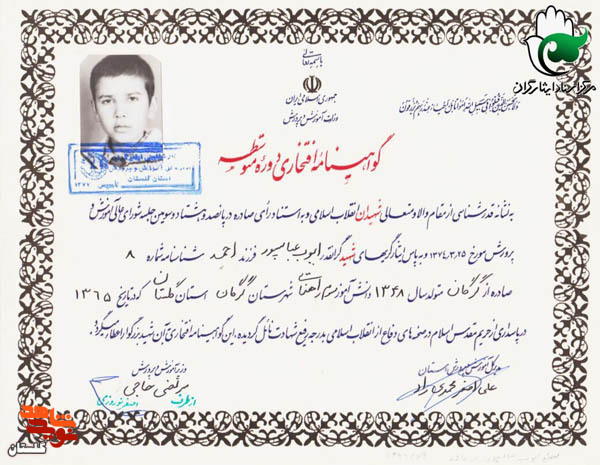 باسمه تعالی
جمهوری اسلامی ایران
وزارت آموزش و پرورش
مرکز اسناد ایثارگران
گواهینامه افتخاری دوره متوسطه
استان گلستان
به نشانه قدرشناسی از مقام والا و متعالی شهیدان انقلاب اسلامی و به استناد رأی صادره در پانصد و هشتاد و سومین جلسه شورای عالی آموزش و
پرورش مورخ ۱۳۷۴،۳،۲۵ و به پاس ایثارگریهای شهید گرانقدر ایوب عباسپور فرزند احمد شناسنامه شماره ۸
صادره از گرگان متولد سال ۱۳۴۸ دانش آموز شهرستان گرگان استان گلستان که در تاریخ ۱۳۶۵
در پاسداری از حریم مقدس اسلام در صحنه های دفاع از انقلاب اسلامی به درجه رفیع شهادت نائل گردیده، این گواهینامه افتخاری به آن شهید بزرگوار اعطا میگردد.
وزیر آموزش و پرورش
مرتضی حاجی
از طرف
مدیر کل آموزش و پرورش استان
گلستان